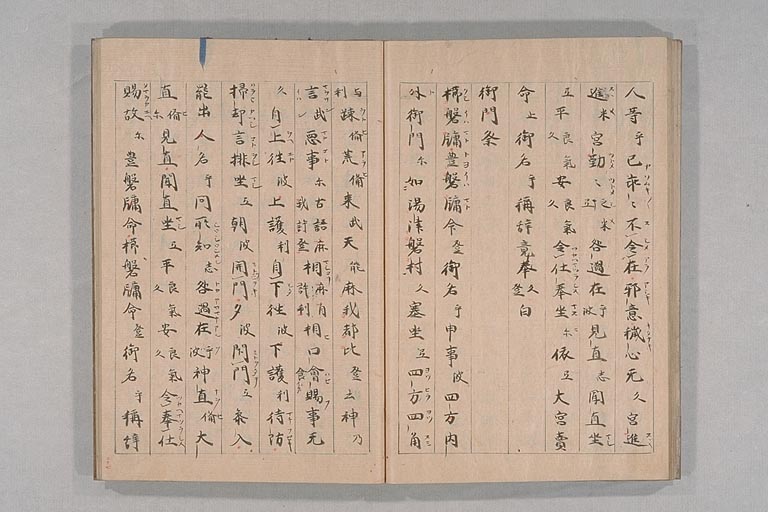 人等乎己乖〻不令在邪意穢心无久宮進
進米宮勤〻之米弖咎過在乎見直志聞直坐
弖平良氣久安良氣久令仕奉坐尓依弖大宮賣
命止御名乎稱辞竟奉久登白
御門祭
櫛磐牖豊磐牖命登御名乎申事波四方内
外御門尓如湯津磐村久塞坐弖四方四角
与利疎備荒備来武天能麻我都比登云神乃
言武悪事尓古語麻我許登相麻自許利相口會賜事无
久自上往波上護利自下往波下護利待防
掃却言排坐弖朝波開門夕波閇門弖参入
罷出人名乎問所知志咎過在乎波神直備大
直備尓見直聞直坐弖平良氣久安良氣久令奉仕
賜故尓豊磐牖命櫛磐牖命登御名乎稱辞